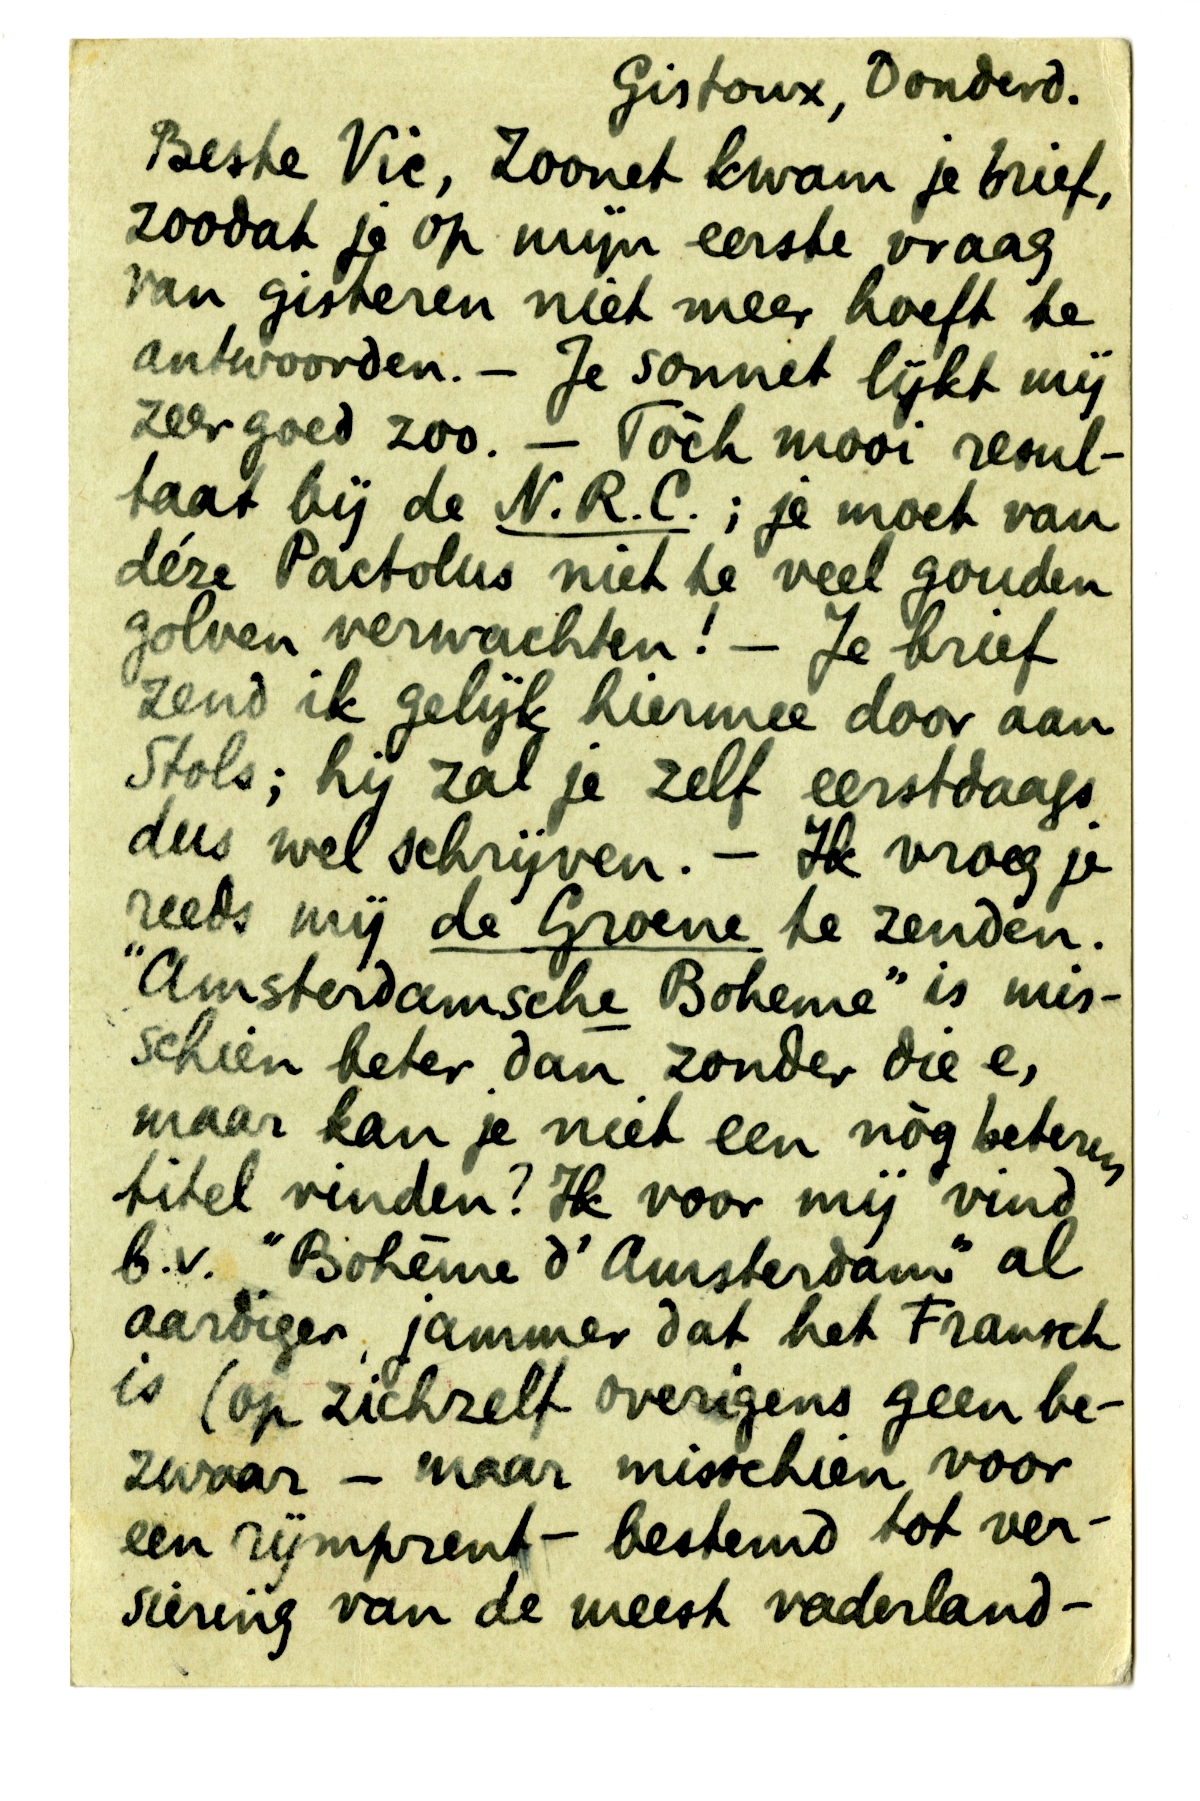 Gistoux, Donderd.
Beste Vic, Zoonet kwam je brief,
zoodat je op mijn eerste vraag
van gisteren niet meer hoeft te
antwoorden. — Je sonnet lijkt mij
zeer goed zoo. — Tòch mooi resul-
taat bij de N.R.C.; je moet van
déze Pactolus niet te veel gouden
golven verwachten! — Je brief
zend ik gelijk hiermee door aan
Stols; hij zal je zelf eerstdaags
dus wel schrijven. — Ik vroeg je
reeds mij de Groene te zenden.
"Amsterdamsche Boheme" is mis-
schien beter dan zonder die e,
maar kan je niet een nòg beteren
titel vinden? Ik voor mij vind
b.v. "Bohême d'Amsterdam" al
aardiger, jammer dat het Fransch
is (op zichzelf overigens geen be-
zwaar — maar misschien voor
een rijmprent — bestemd tot ver-
siering van de meest vaderland-